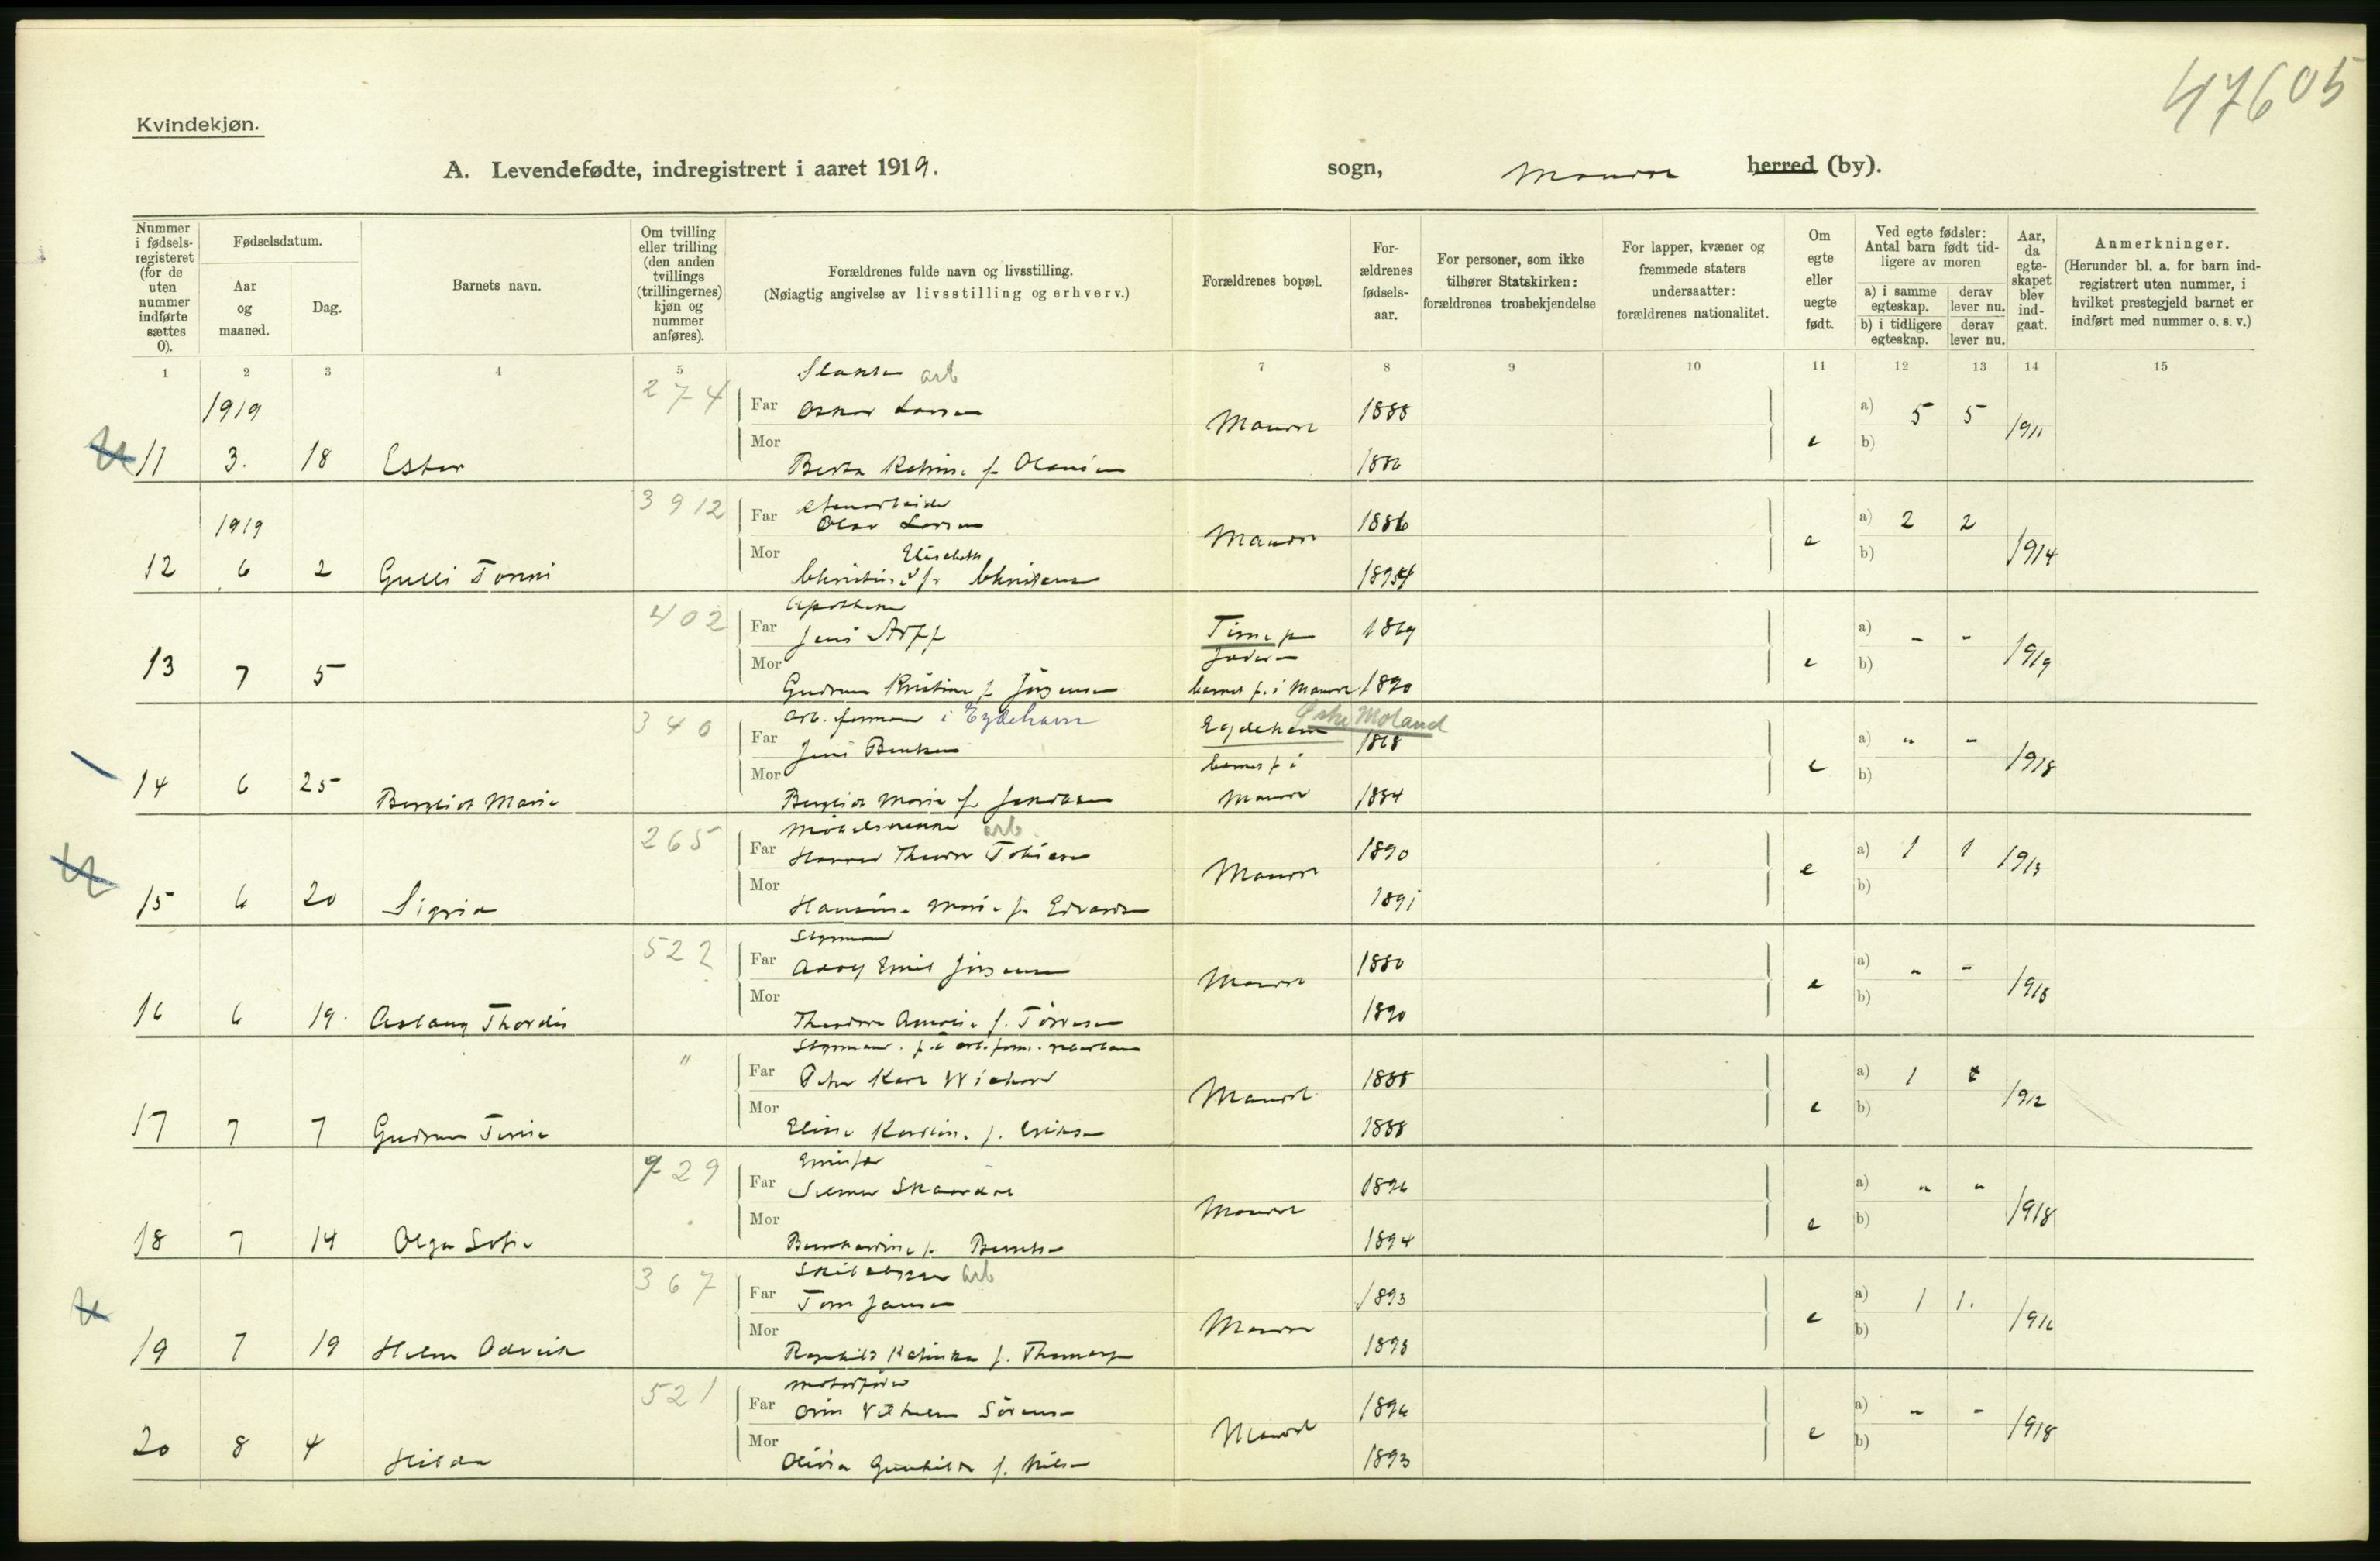 47605
Kvindekjøn.
A. Levendefødte, indregistrert i aaret 1919. sogn, Mandal herred (by).
Nummer i fødselsregisteret (for de uten nummer indførte sættes 0).
Fødselsdatum.
Aar og maaned.
Dag.
Barnets navn.
Om tvilling eller trilling (den anden tvillings (trillingernes) kjøn og nummer anføres).
Forældrenes fulde navn og livsstilling.
(Nøiagtig angivelse av livsstilling og erhverv.)
Forældrenes bopæl.
Forældrenes fødselsaar.
For personer, som ikke tilhører Statskirken: forældrenes trosbekjendelse
For lapper, kvæner og fremmede staters undersaatter: forældrenes nationalitet.
Om egte eller uegte født.
Ved egte fødsler: Antal barn født tidligere av moren
a) i samme egteskap. derav lever nu.
b) i tidligere egteskap. derav lever nu.
Aar, da egteskapet blev indgaat.
Anmerkninger.
(Herunder bl. a. for barn indregistrert uten nummer, i hvilket prestegjeld barnet er indført med nummer o. s. v.)
1 2 3 4 5 7 8 9 10 11 12 13 14 15
274 arb
1919 Far Oskar Larsen Mandal 1888 a) 5 5 1911
11 3. 18 Ester Mor f. Olausen 1886 e b)
3912 Stenarbeider
1919 Far Olav Larsen Mandal 1886 a) 2 2 1914
Elisabeth
12 6 2 Gulli Tonni Mor f. Christensen e b)
402 Apotheker
Far Jens Arff Time p 1869 a) - - 1919
Jæderen
13 7 5 Mor Gudrun Kristine f. Jørgensen i Mandal 1890 e b)
340 arb. formand i Eydehavn
Far Jens Bentsen Eydehavn Østre Moland 1868 a) " - 1918
14 6 25 Bergliot Marie Mor Bergliot Marie f. Jakobsen Mandal 1884 e b)
265 Møbelsnekker arb.
Far Theodor Tobiasen Mandal 1890 a) 1 1 1913
15 6 20 Sigrid Mor Hansine Marie f. Edvardsen 1891 e b)
522 Styrmand
Far Adolf Emil Jørgensen Mandal 1880 a) " - 1918
16 6 19. Aslaug Thordis Mor Theodora Amalie f. Tørresen 1890 e b)
" Styrmand
Far Peter Karl Mandal 1888 a) 1 1912
17 7 7 Gudrun Mor Elise f. Eriksen 1888 e b)
729
Far Mandal 1896 a) " " 1918
18 7 14 Olga Sofie Mor Bernhardine f. Berntsen 1894 e b)
367 Skibsbygger arb
Far Tom Jansen Mandal 1893 a) 1 1. 1916
19 7 19 Mor Ragnhild Katinka f. 1898 e b)
521 Motorfører
Far Vilhelm Sørensen Mandal 1896 a) - - 1918
20 8 4 Hilda Mor Olivia Gunhilda f. Nilsen 1893 e b)